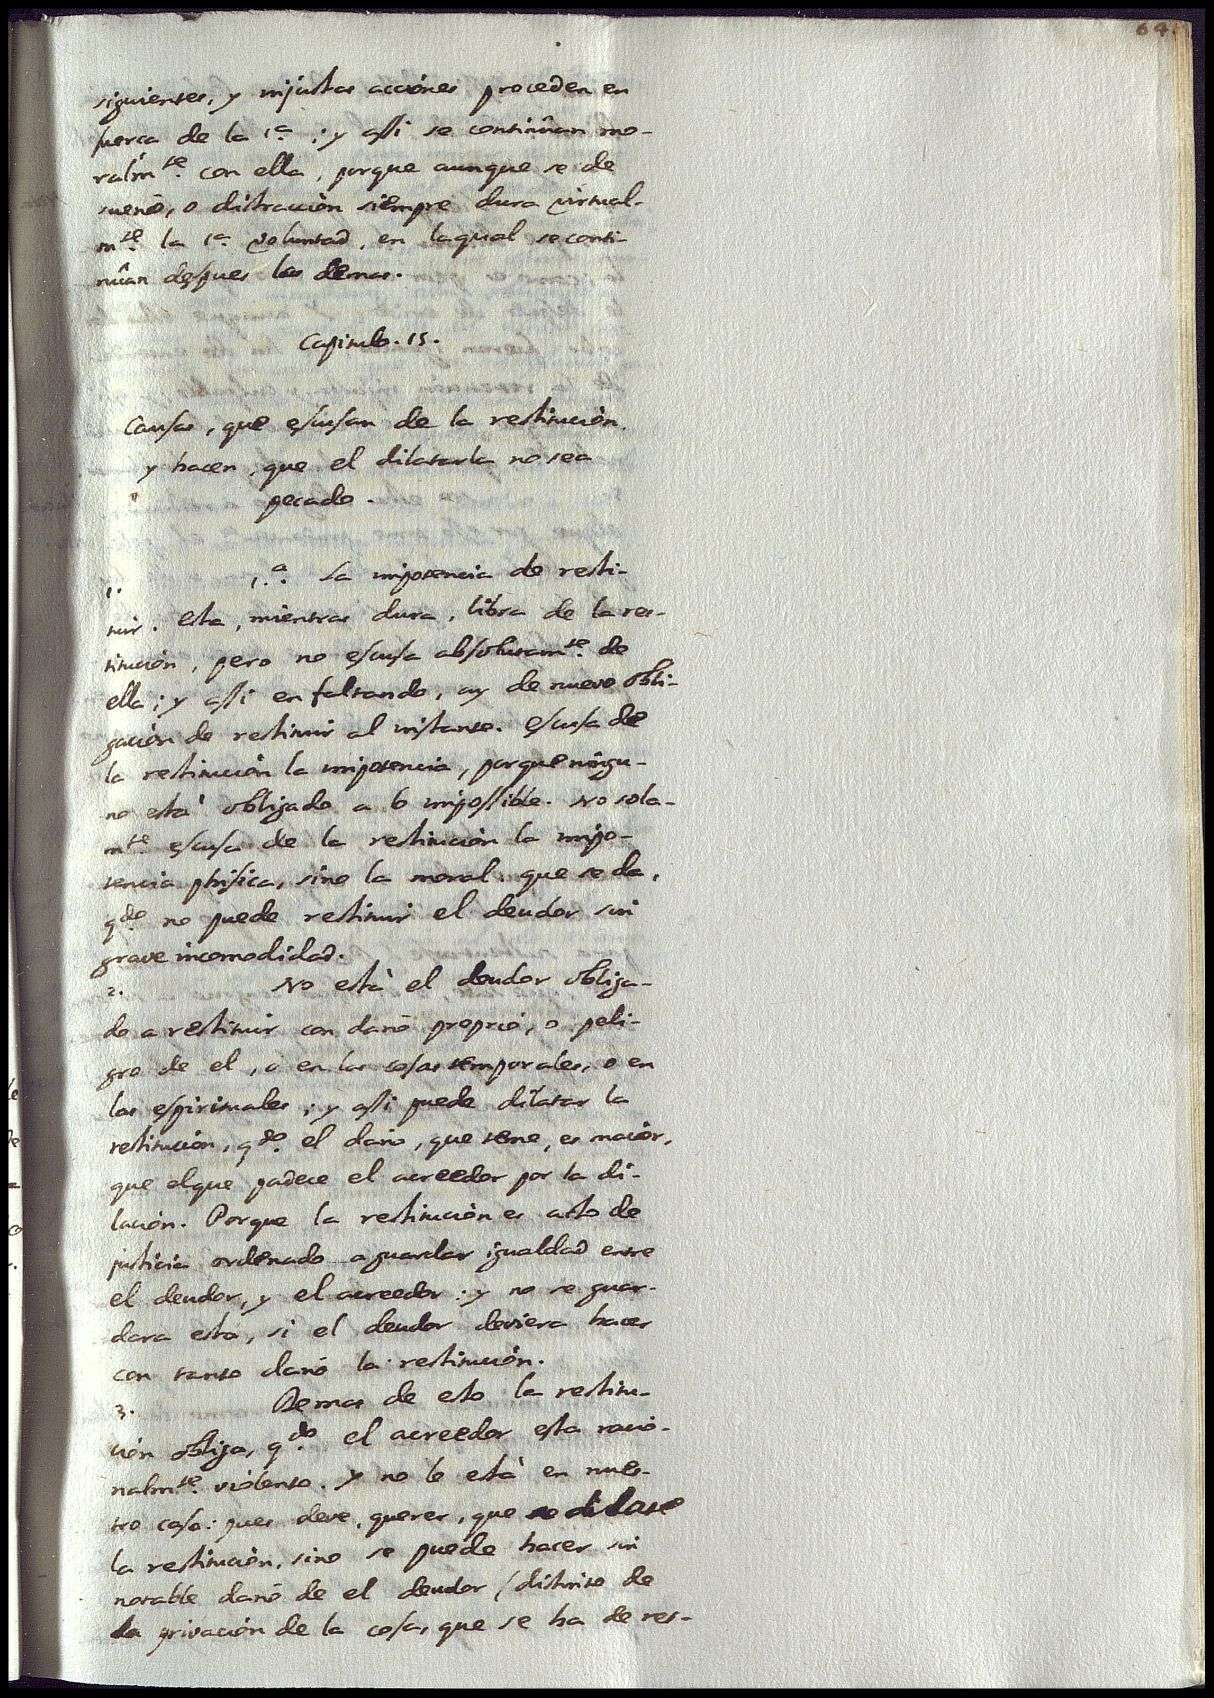 64.
siguientes, y injustas acciones proceden en
fuerca de la 1ª; y assi se continûan mo-
ralmte. con ella, porque aunque se de
sueño, o distracción siempre dura virtual-
mte. la 1ª. voluntad, en laqual se conti-
nûan despues las demas.
Capitulo. 15.
Causas, que escusan de la restitución,
y hacen, que el dilatarla no sea
pecado.
1. 1.ª La impotencia de resti-
tuir. esta, mientras dura, libra de la res-
titución, pero no escusa absolutamte. de
ella; y assi en faltando, ay de nuevo obli-
gación de restituir al instante. escusa de
la restitución la impotencia, porque ningu-
no està obligado a lo impossible. No sola-
mte. escusa de la restitución la impo-
tencia phisica, sino la moral, que se da,
qdo. no puede restituir el deudor sin
grave incomodidad.
2. No està el deudor obliga-
do a restituir con daño proprio, o peli-
gro de el, o en las cosas temporales, o en
las espirituales; y assi puede dilatar la
restitución, qdo. el daño, que teme, es maior,
que elque padece el acreedor por la di-
lación. Porque la restitución es acto de
justicia ordenado aguardar igualdad entre
el deudor, y el acreedor: y no se guar-
dara esta, si el deudor deviera hacer
con tanto daño la restitución.
3. Demas de esto la restitu-
ción obliga, qdo. el acreedor esta racio-
nalmte. violento. y no lo està en nues-
tro caso: pues deve, querer, que se dilate
la restitución, sino se puede hacer sin
notable daño de el deudor (distinto de
la privación de la cosa, que se ha de res-